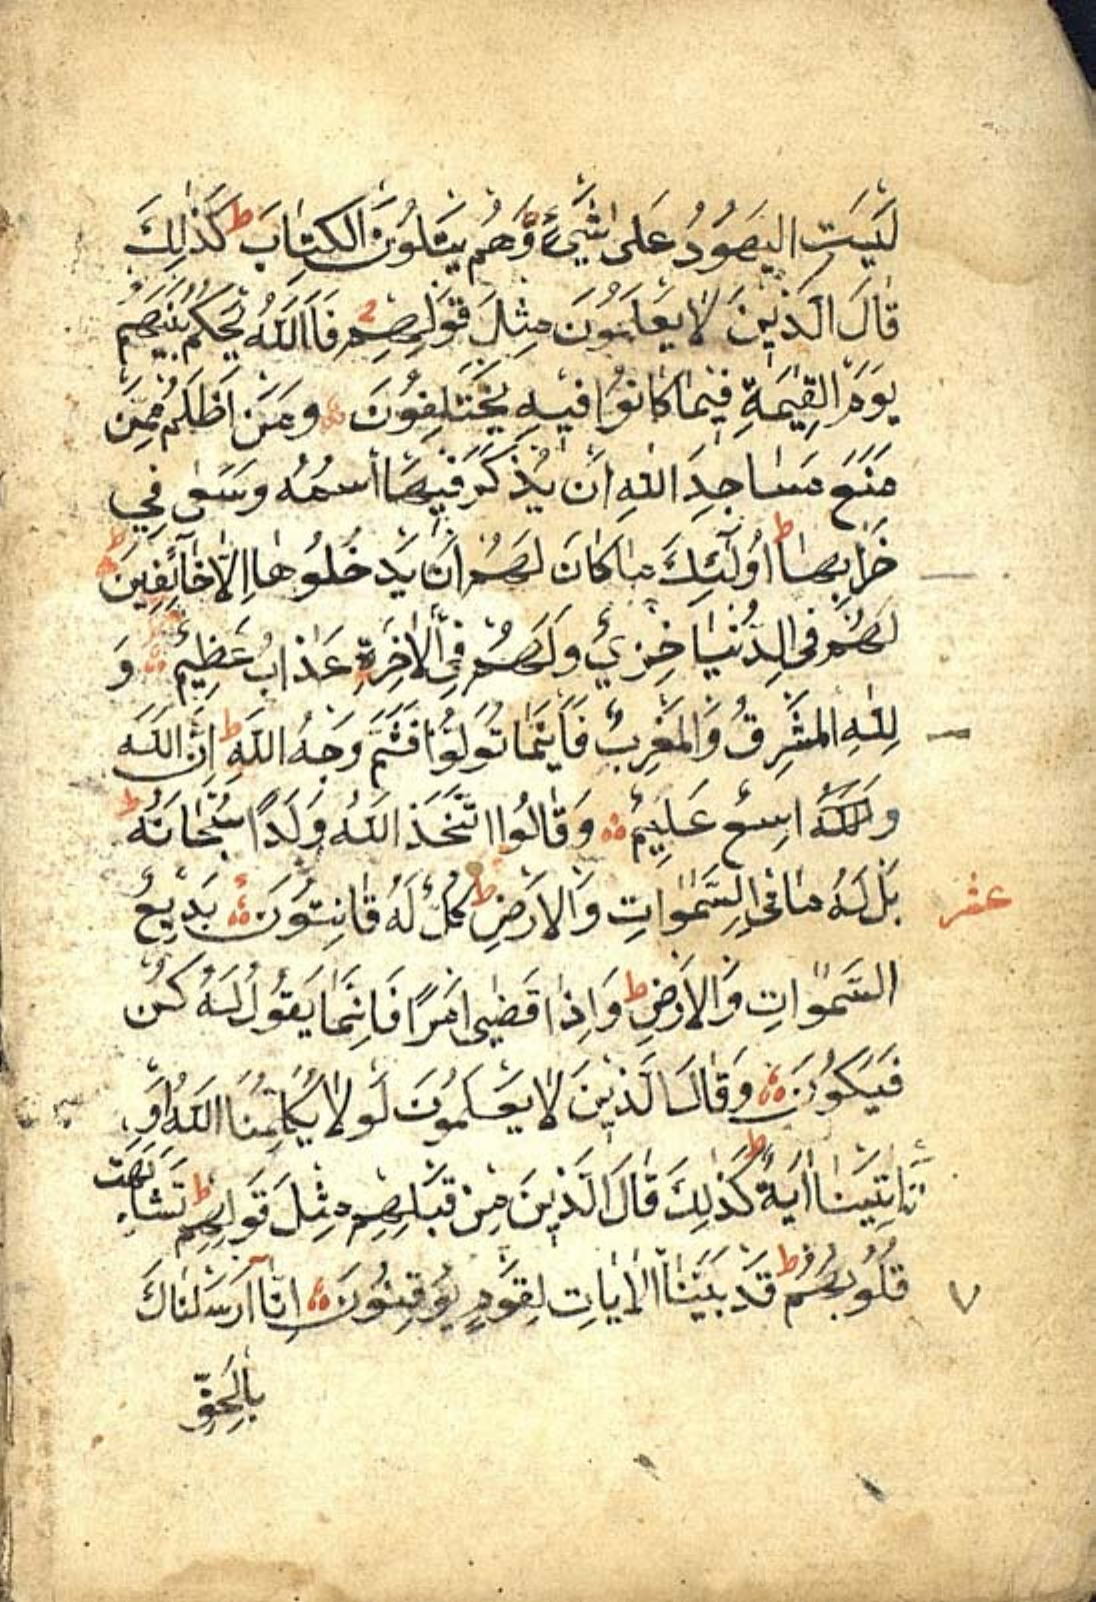 لَيْسَتِ الْيَهُودُ عَلَىٰ شَيْءٍ وَهُمْ يَتْلُونَ الْكِتَابَ ط كَذَٰلِكَ
قَالَ الَّذِينَ لَا يَعْلَمُونَ مِثْلَ قَوْلِهِمْ فَاللَّهُ يَحْكُمُ بَيْنَهُمْ
يَوْمَ الْقِيٰمَةِ فِيمَا كَانُوا فِيهِ يَخْتَلِفُونَ وَمَنْ أَظْلَمُ مِمَّنْ
مَنَعَ مَسَاجِدَ اللَّهِ أَنْ يُذْكَرَ فِيهَا اسْمُهُ وَسَعَىٰ فِي
خَرَابِهَا ط أُولَٰئِكَ مَا كَانَ لَهُمْ أَنْ يَدْخُلُوهَا إِلَّا خَائِفِينَ ط
لَهُمْ فِي الدُّنْيَا خِزْيٌ وَلَهُمْ فِي الْآخِرَةِ عَذَابٌ عَظِيمٌ وَ
لِلَّهِ الْمَشْرِقُ وَالْمَغْرِبُ فَأَيْنَمَا تُوَلُّوا فَثَمَّ وَجْهُ اللَّهِ ط إِنَّ اللَّهَ
وَاسِعٌ عَلِيمٌ وَقَالُوا اتَّخَذَ اللَّهُ وَلَدًا سُبْحَانَهُ ط
بَلْ لَهُ مَا فِي السَّمٰوَاتِ وَالْأَرْضِ ط كُلٌّ لَهُ قَانِتُونَ بَدِيعُ
عشر
السَّمٰوَاتِ وَالْأَرْضِ ط وَإِذَا قَضَىٰ أَمْرًا فَإِنَّمَا يَقُولُ لَهُ كُنْ
فَيَكُونُ وَقَالَ الَّذِينَ لَا يَعْلَمُونَ لَوْلَا يُكَلِّمُنَا اللَّهُ أَوْ
تَأْتِينَا آيَةٌ ط كَذَٰلِكَ قَالَ الَّذِينَ مِنْ قَبْلِهِمْ مِثْلَ قَوْلِهِمْ ط تَشَابَهَتْ
قُلُوبُهُمْ ط قَدْ بَيَّنَّا الْآيَاتِ لِقَوْمٍ يُوقِنُونَ إِنَّا أَرْسَلْنَاكَ
٧
بِالْحَقِّ